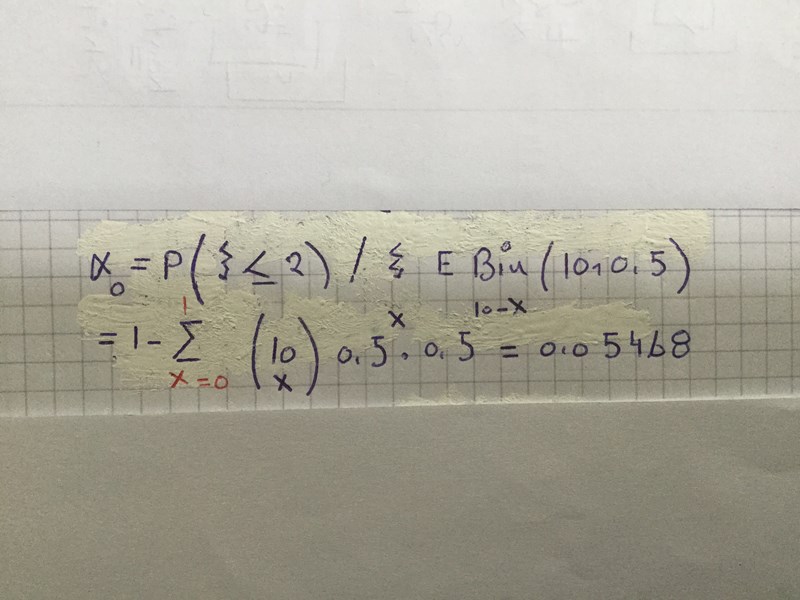 α₀ = P(ξ ≤ 2) / ξ ∈ Bin(10, 0.5)
= 1 - ∑ₓ₌₀¹ (10 x) 0.5ˣ · 0.5¹⁰⁻ˣ = 0.05468